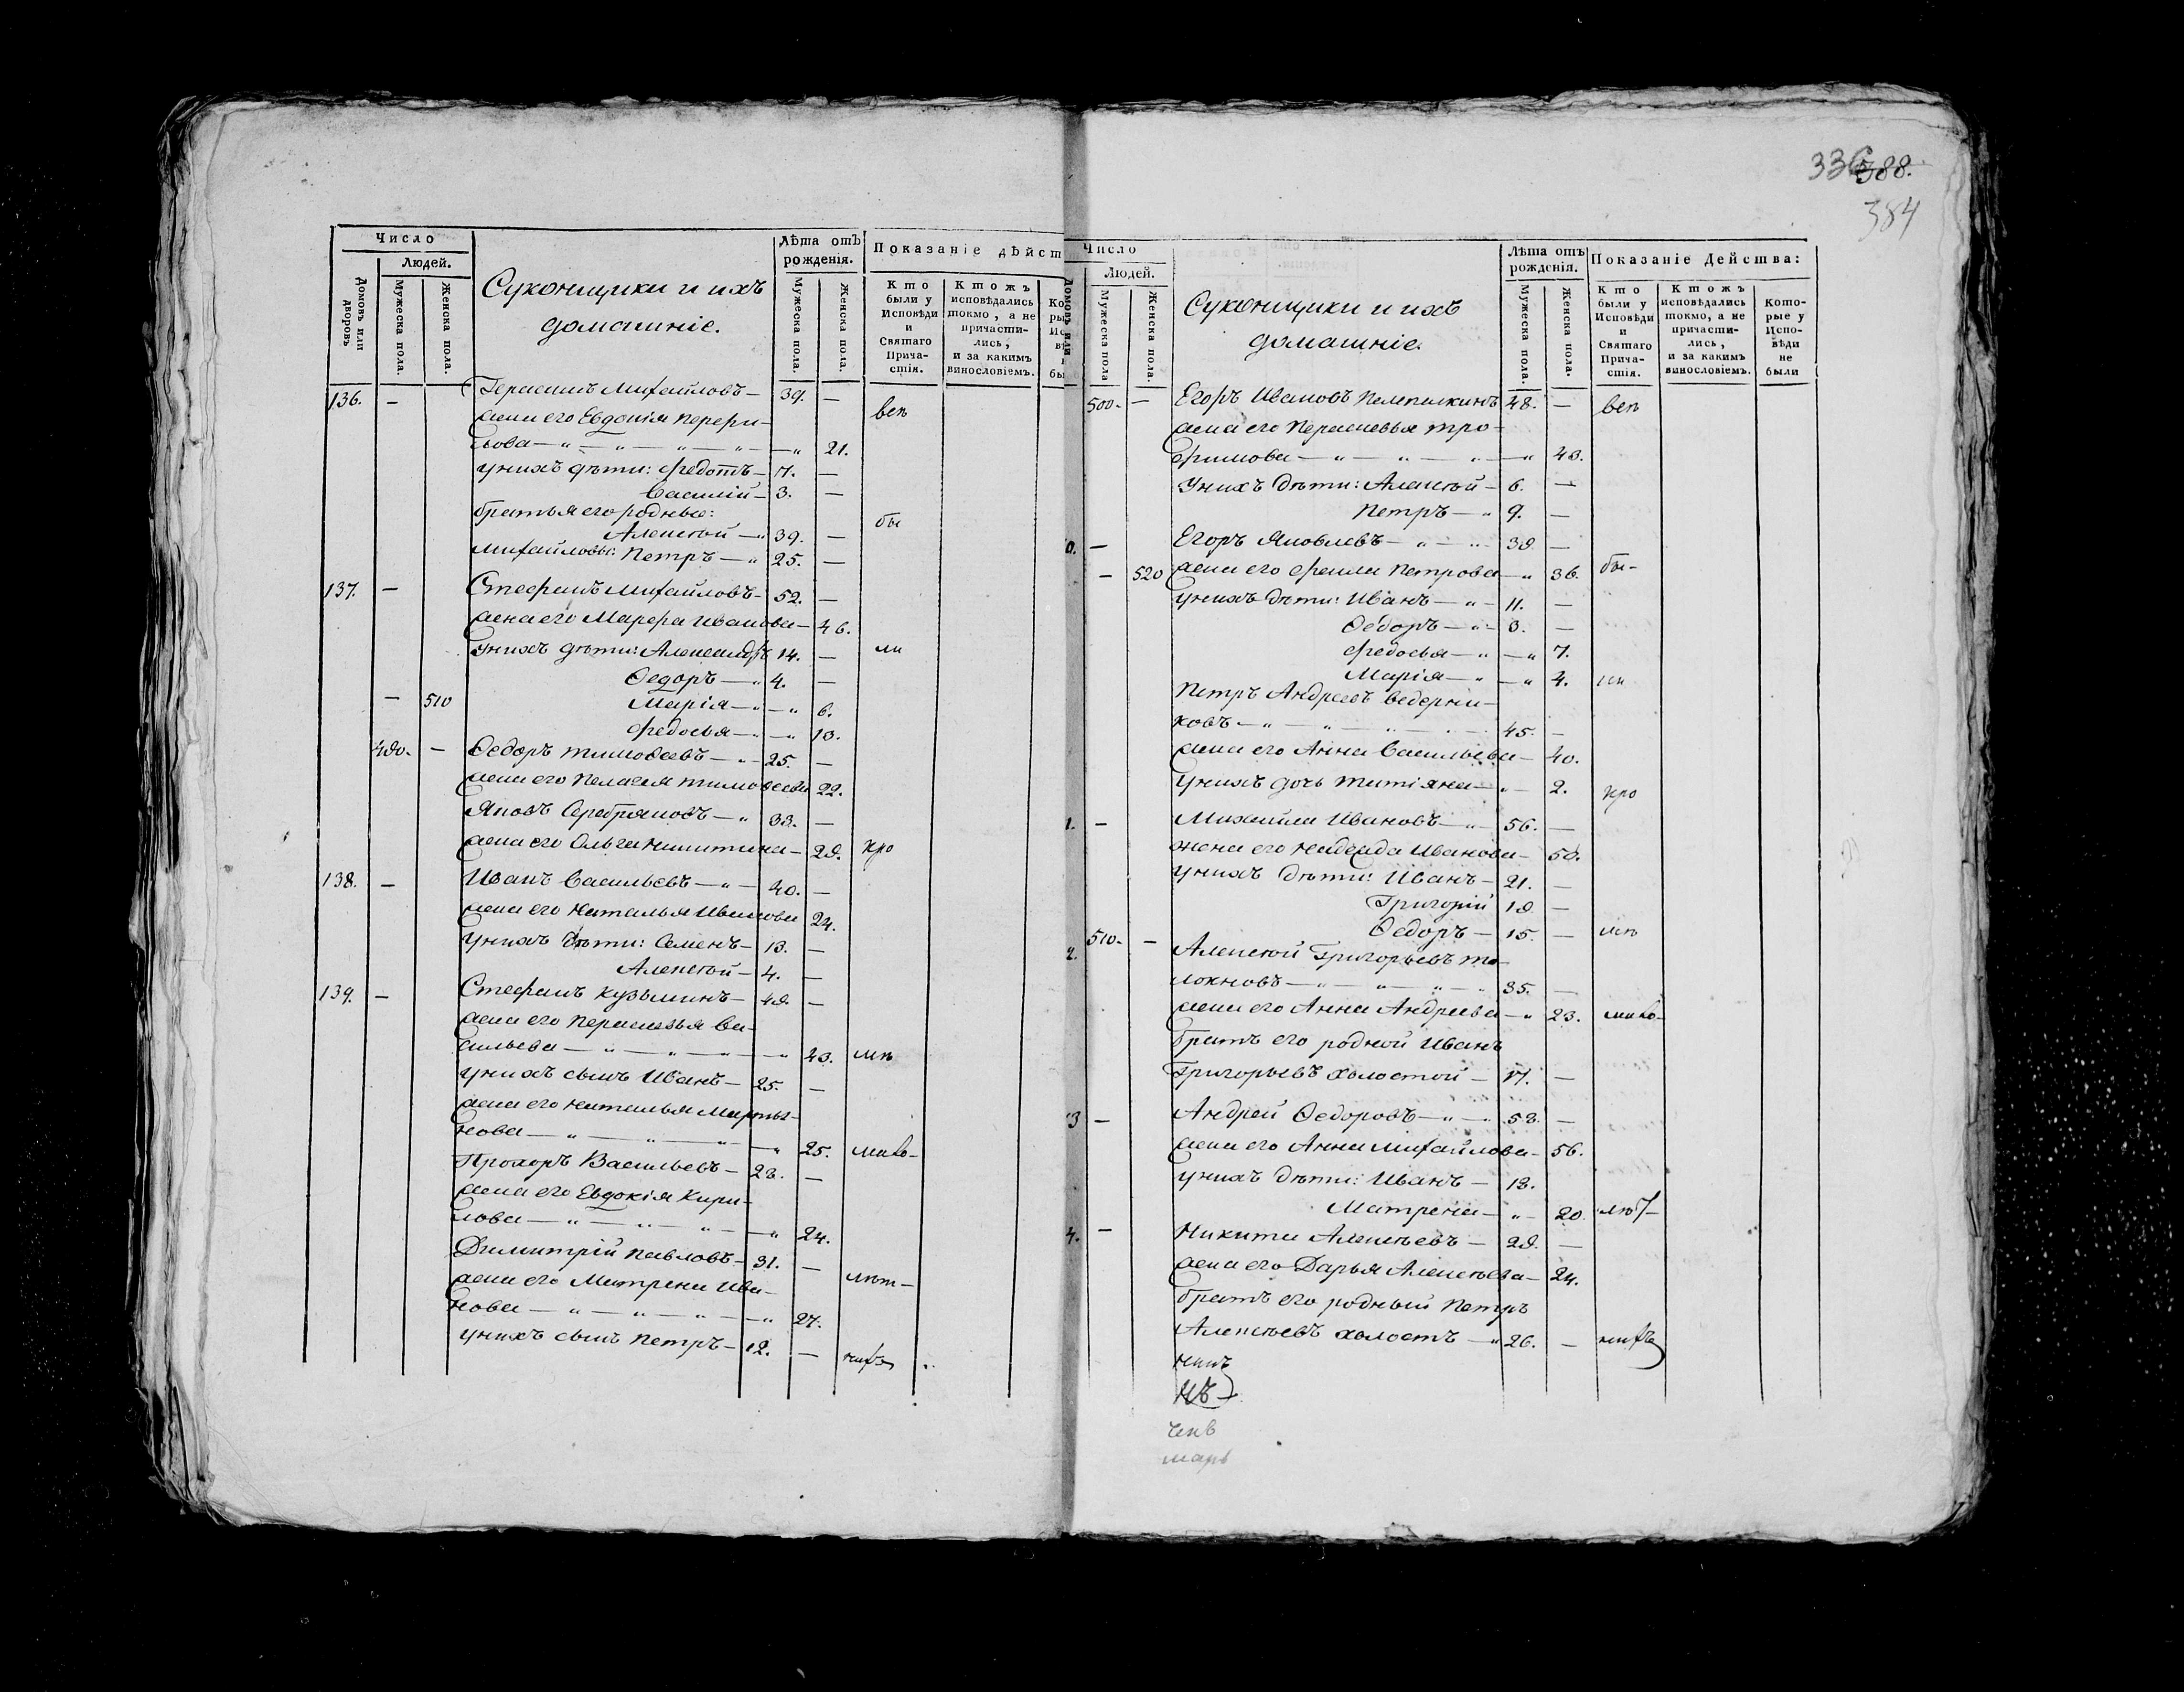 336 388.
384
Число
Людей.
Домовъ или дворовъ
Мужеска пола.
Женска пола.
Суконщики и ихъ
домашніе.
Лѣта отъ
рожденія.
Мужеска пола.
Женска пола.
Показаніе дѣйст
Кто
были у
Исповѣди
и
Святаго
Прича-
стія.
Ктожъ
исповѣдались
токмо, а не
причасти-
лись,
и за какимъ
винословіемъ.
136. — Герасимъ Михайловъ — 39. —
жена его Евдокія
21.
у нихъ дѣти: Федотъ — 7. —
Василій — 3. —
братья его родные:
Алексѣй — 39. — бы
Михайловы: Петръ — 25. —
137. — Стефанъ Михайловъ — 52. —
жена его Марфа Иванова — 46.
у нихъ дѣти: Александръ 14. — ли
Ѳедоръ — 4. —
— 510 Марія — 6.
Федосья — 13.
490. — Ѳедоръ Тимоѳеевъ — 25. —
жена его Пелагея Тимоѳеева 22.
Яковъ Серебряновъ — 33. —
жена его Ольга Никитина — 28. про
138. — Иванъ Васильевъ — 40. —
жена его Наталья Иванова 24.
у нихъ дѣти: Семенъ — 13. —
Алексѣй — 4. —
139. — Стефанъ Кузьминъ — 48. —
жена его Парасковья Ва-
сильева — 43.
у нихъ сынъ Иванъ — 25. —
жена его Наталья Марты-
нова — 25.
Прохоръ Васильевъ — 28. —
жена его Евдокія Кири-
лова — 24.
Димитрій Павловъ — 31. —
жена его Матрена Ива-
нова — 27.
у нихъ сынъ Петръ — 12. —
Число
Людей.
Домовъ или
Мужеска пола
Женска пола.
Суконщики и ихъ
домашніе.
Лѣта отъ
рожденія.
Мужеска пола.
Женска пола.
Показаніе Действа:
Кто
были у
Исповѣди
и
Святаго
Прича-
стія.
Ктожъ
исповѣдались
токмо, а не
причасти-
лись,
и за какимъ
винословіемъ.
Кото-
рые у
Испо-
вѣди
не
были
500. — Егоръ Ивановъ 48. —
жена его Парасковья Тро-
фимова — 43.
у нихъ дѣти: Алексѣй — 6. —
Петръ — 9. —
0. — Егоръ Яковлевъ — 38 —
— 520 жена его Фекла Петрова — 36. бы-
у нихъ дѣти: Иванъ — 11. —
Ѳедоръ — 3. —
Федосья — 7.
Марія — 4. ли
Петръ Андреевъ Ведерни-
ковъ — 45. —
жена его Анна Васильева — 40.
у нихъ дочь Татіяна — 2. про
1. — Михайла Ивановъ — 56. —
жена его Надежда Иванова — 50.
у нихъ дѣти: Иванъ — 21. —
Григорій 18 —
510. — Ѳедоръ — 15. —
2. Алексѣй Григорьевъ То-
локновъ — 35. —
жена его Анна Андреева — 23.
братъ его родной Иванъ
Григорьевъ холостой — 17. —
3 — Андрей Ѳедоровъ — 58. —
жена его Анна Михайлова — 56.
у нихъ дѣти: Иванъ — 18.
Матрена — 20.
4. — Никита Алексѣевъ — 28. —
жена его Дарья Алексѣева — 24.
братъ его родный Петръ
Алексѣевъ холостъ — 26. —